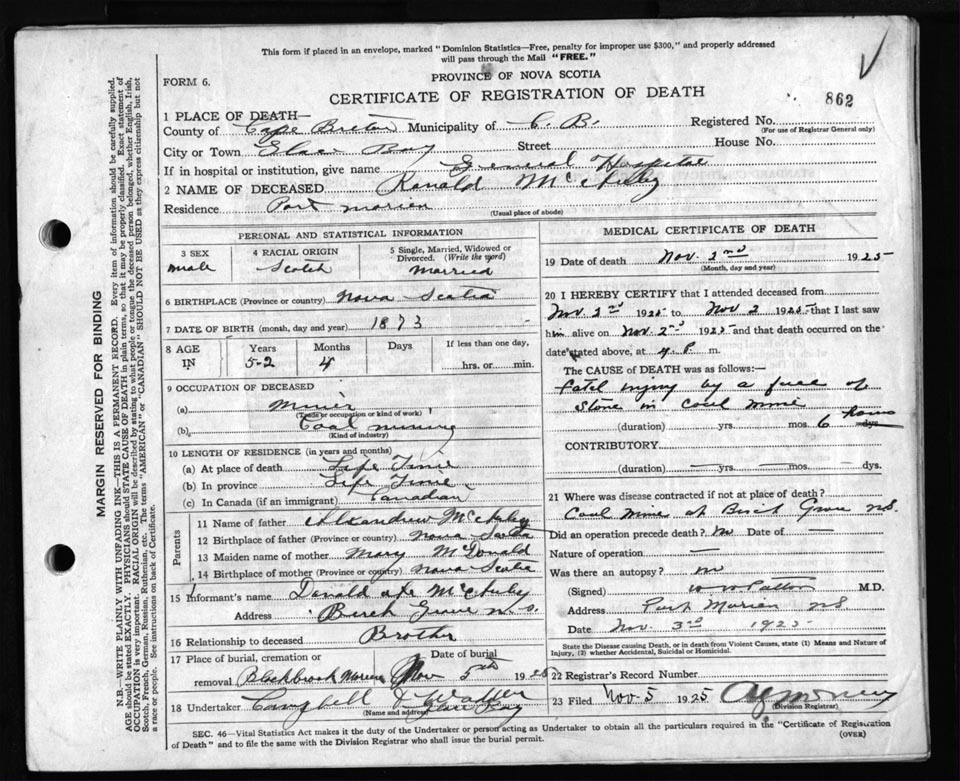 This form if placed in an envelope, marked "Dominion Statistics—Free, penalty for improper use $300," and properly addressed
will pass through the Mail "FREE."
PROVINCE OF NOVA SCOTIA
FORM 6.
CERTIFICATE OF REGISTRATION OF DEATH
862
1 PLACE OF DEATH—
Registered No.
(For use of Registrar General only)
County of Cape Breton Municipality of C. B.
City or Town Glace Bay Street House No.
If in hospital or institution, give name General Hospital
2 NAME OF DECEASED Ranald
Residence Port Morien
(Usual place of abode)
PERSONAL AND STATISTICAL INFORMATION
3 SEX 4 RACIAL ORIGIN 5 Single, Married, Widowed or Divorced. (Write the word)
male Scotch Married
6 BIRTHPLACE (Province or country) Nova Scotia
7 DATE OF BIRTH (month, day and year) 1873
8 AGE IN Years Months Days If less than one day,
52 4 hrs. or min.
9 OCCUPATION OF DECEASED
(a) Miner
(Trade or occupation or kind of work)
(b) Coal mining
(Kind of industry)
10 LENGTH OF RESIDENCE (in years and months)
(a) At place of death Life Time
(b) In province Life Time
(c) In Canada (if an immigrant) Canadian
Parents
11 Name of father
12 Birthplace of father (Province or country) Nova Scotia
13 Maiden name of mother Mary McDonald
14 Birthplace of mother (Province or country) Nova Scotia
15 Informant's name Donald
Address Birch Grove N.S.
16 Relationship to deceased Brother
17 Place of burial, cremation or removal Blackbrook Morien Date of burial Nov 5th 1925
18 Undertaker Campbell Glace Bay
(Name and address)
MEDICAL CERTIFICATE OF DEATH
19 Date of death Nov. 2nd 1925
(Month, day and year)
20 I HEREBY CERTIFY that I attended deceased from
Nov. 2nd 1925 to Nov 2 1925 that I last saw
him alive on Nov. 2nd 1925 and that death occurred on the
date stated above, at 4 P. m.
The CAUSE of DEATH was as follows:—
Fatal injury by a fall of
stone in coal mine
(duration) yrs. mos. 6 hours dys.
CONTRIBUTORY.
(duration) — yrs. — mos. — dys.
21 Where was disease contracted if not at place of death?
Coal mine at Birch Grove NS.
Did an operation precede death? No Date of —
Nature of operation —
Was there an autopsy? no
(Signed) Patton M.D.
Address Port Morien NS
Date Nov. 3rd 1925
State the Disease causing Death, or in death from Violent Causes, state (1) Means and Nature of
Injury, (2) whether Accidental, Suicidal or Homicidal.
22 Registrar's Record Number
23 Filed Nov 5 1925
(Division Registrar)
SEC. 46—Vital Statistics Act makes it the duty of the Undertaker or person acting as Undertaker to obtain all the particulars required in the "Certificate of Registration
of Death" and to file the same with the Division Registrar who shall issue the burial permit.
(OVER)
MARGIN RESERVED FOR BINDING
N.B.—WRITE PLAINLY WITH UNFADING INK—THIS IS A PERMANENT RECORD. Every item of information should be carefully supplied.
AGE should be stated EXACTLY. PHYSICIANS should STATE CAUSE OF DEATH in plain terms, so that it may be properly classified. Exact statement of
OCCUPATION is very important. RACIAL ORIGIN will be described by stating to what people or tongue the deceased person belonged, whether English, Irish,
Scotch, French, German, Russian, Ruthenian, etc. The terms "AMERICAN" or "CANADIAN" SHOULD NOT BE USED as they express citizenship but not
a race or people. See instructions on back of Certificate.